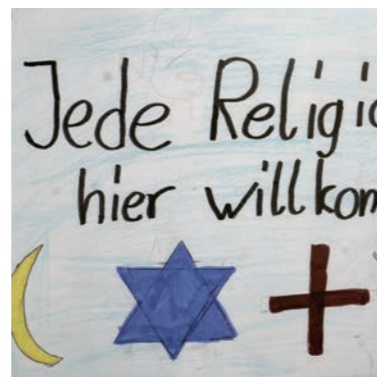 Jede Religio
hier willkom